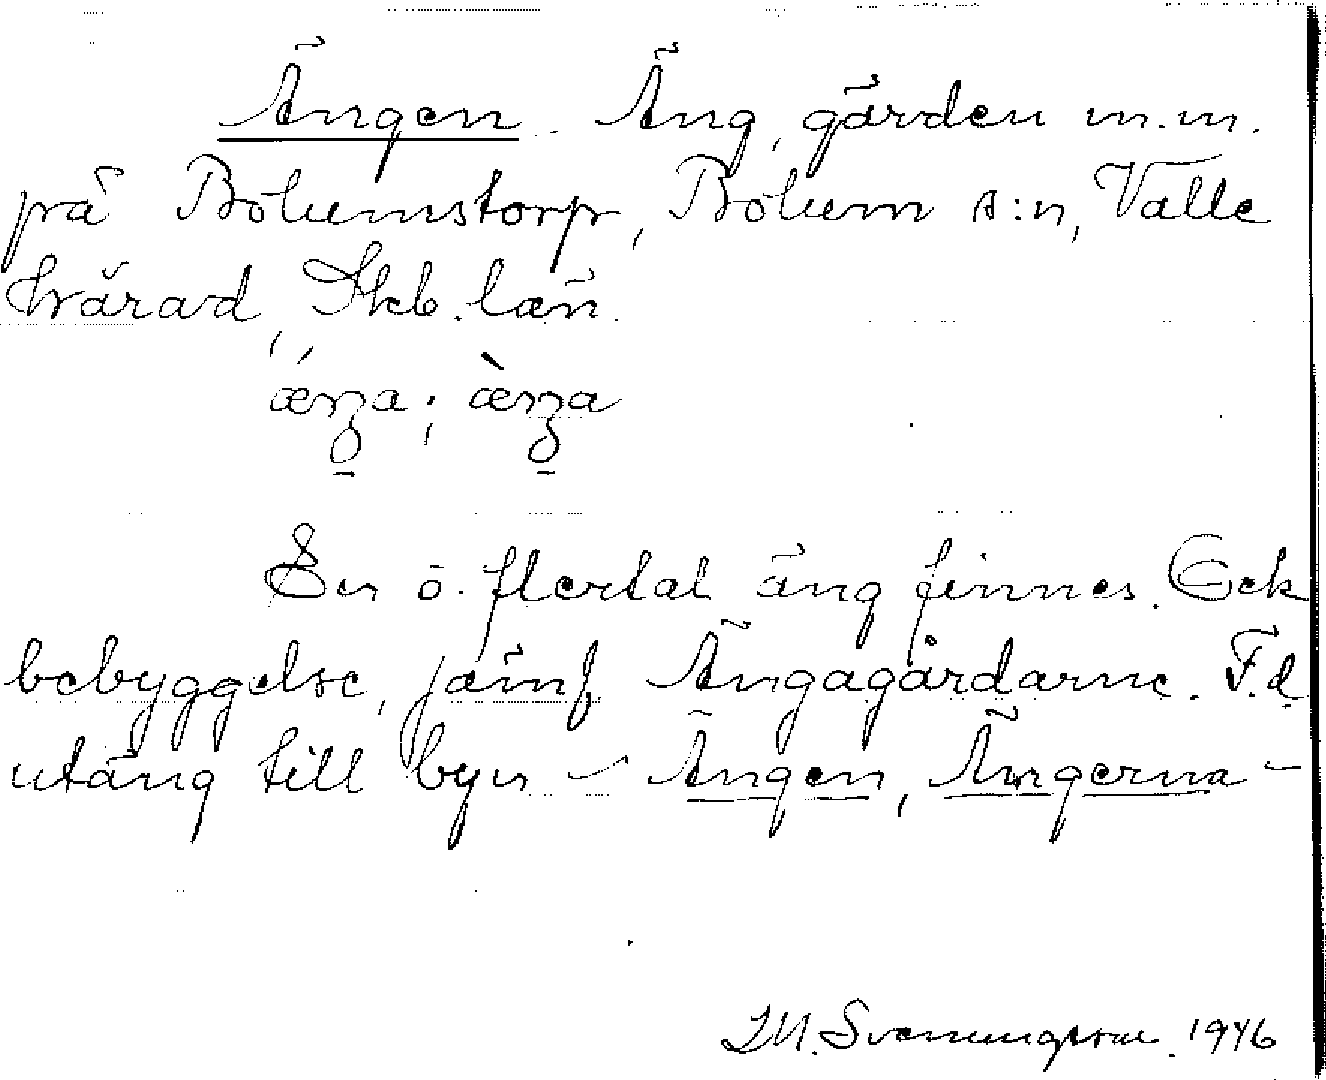 Ängen. Äng, gärden m.m.
på Bolumstorp, Bolum s:n, Valle
härad, Skb. län.
En o. flertal äng finnes. Ock
bebyggelse, jämf. Ängagårdarne. F.d.
utäng till byn – Ängen, Ängerna –
Svenungsson. 1946